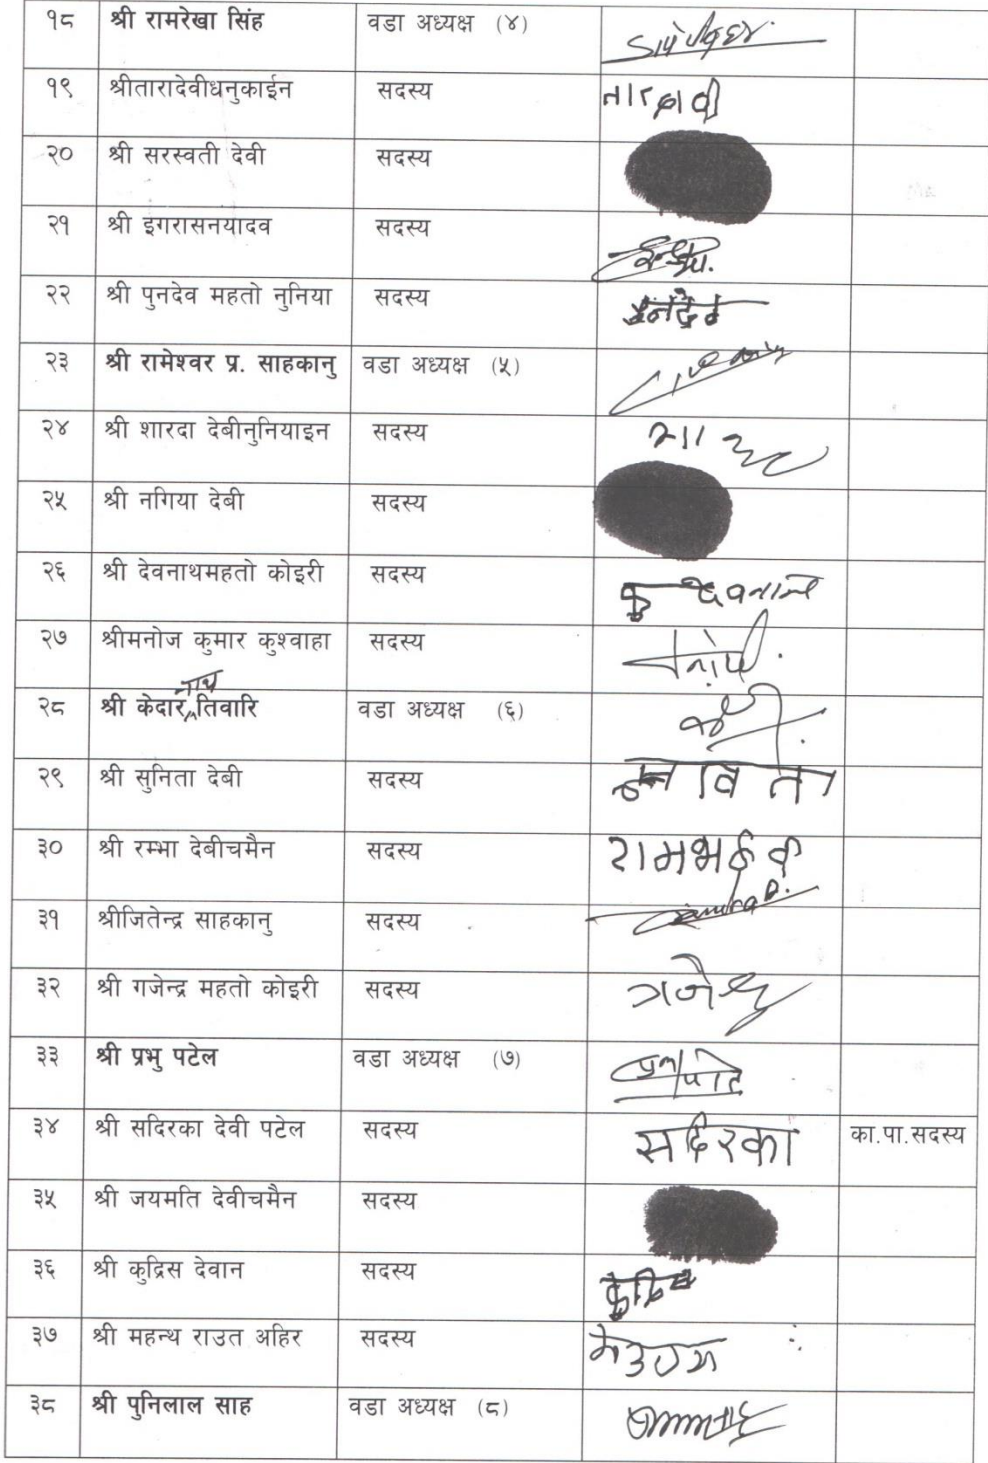 १८ श्री रामरेखा सिंह वडा अध्यक्ष (४)
१९ श्रीतारादेवीधनुकाईन सदस्य
२० श्री सरस्वती देवी सदस्य
२१ श्री इगरासनयादव सदस्य
२२ श्री पुनदेव महतो नुनिया सदस्य
२३ श्री रामेश्वर प्र. साहकानु वडा अध्यक्ष (५)
२४ श्री शारदा देबीनुनियाइन सदस्य
२५ श्री नगिया देबी सदस्य
२६ श्री देवनाथमहतो कोइरी सदस्य
२७ श्रीमनोज कुमार कुश्वाहा सदस्य
नाथ
२८ श्री केदार तिवारि वडा अध्यक्ष (६)
२९ श्री सुनिता देबी सदस्य
३० श्री रम्भा देबीचमैन सदस्य
३१ श्रीजितेन्द्र साहकानु सदस्य
३२ श्री गजेन्द्र महतो कोइरी सदस्य
३३ श्री प्रभु पटेल वडा अध्यक्ष (७)
३४ श्री सदिरका देवी पटेल सदस्य सदिरका का.पा.सदस्य
३५ श्री जयमति देवीचमैन सदस्य
३६ श्री कुद्रिस देवान सदस्य
३७ श्री महन्थ राउत अहिर सदस्य
३८ श्री पुनिलाल साह वडा अध्यक्ष (८)